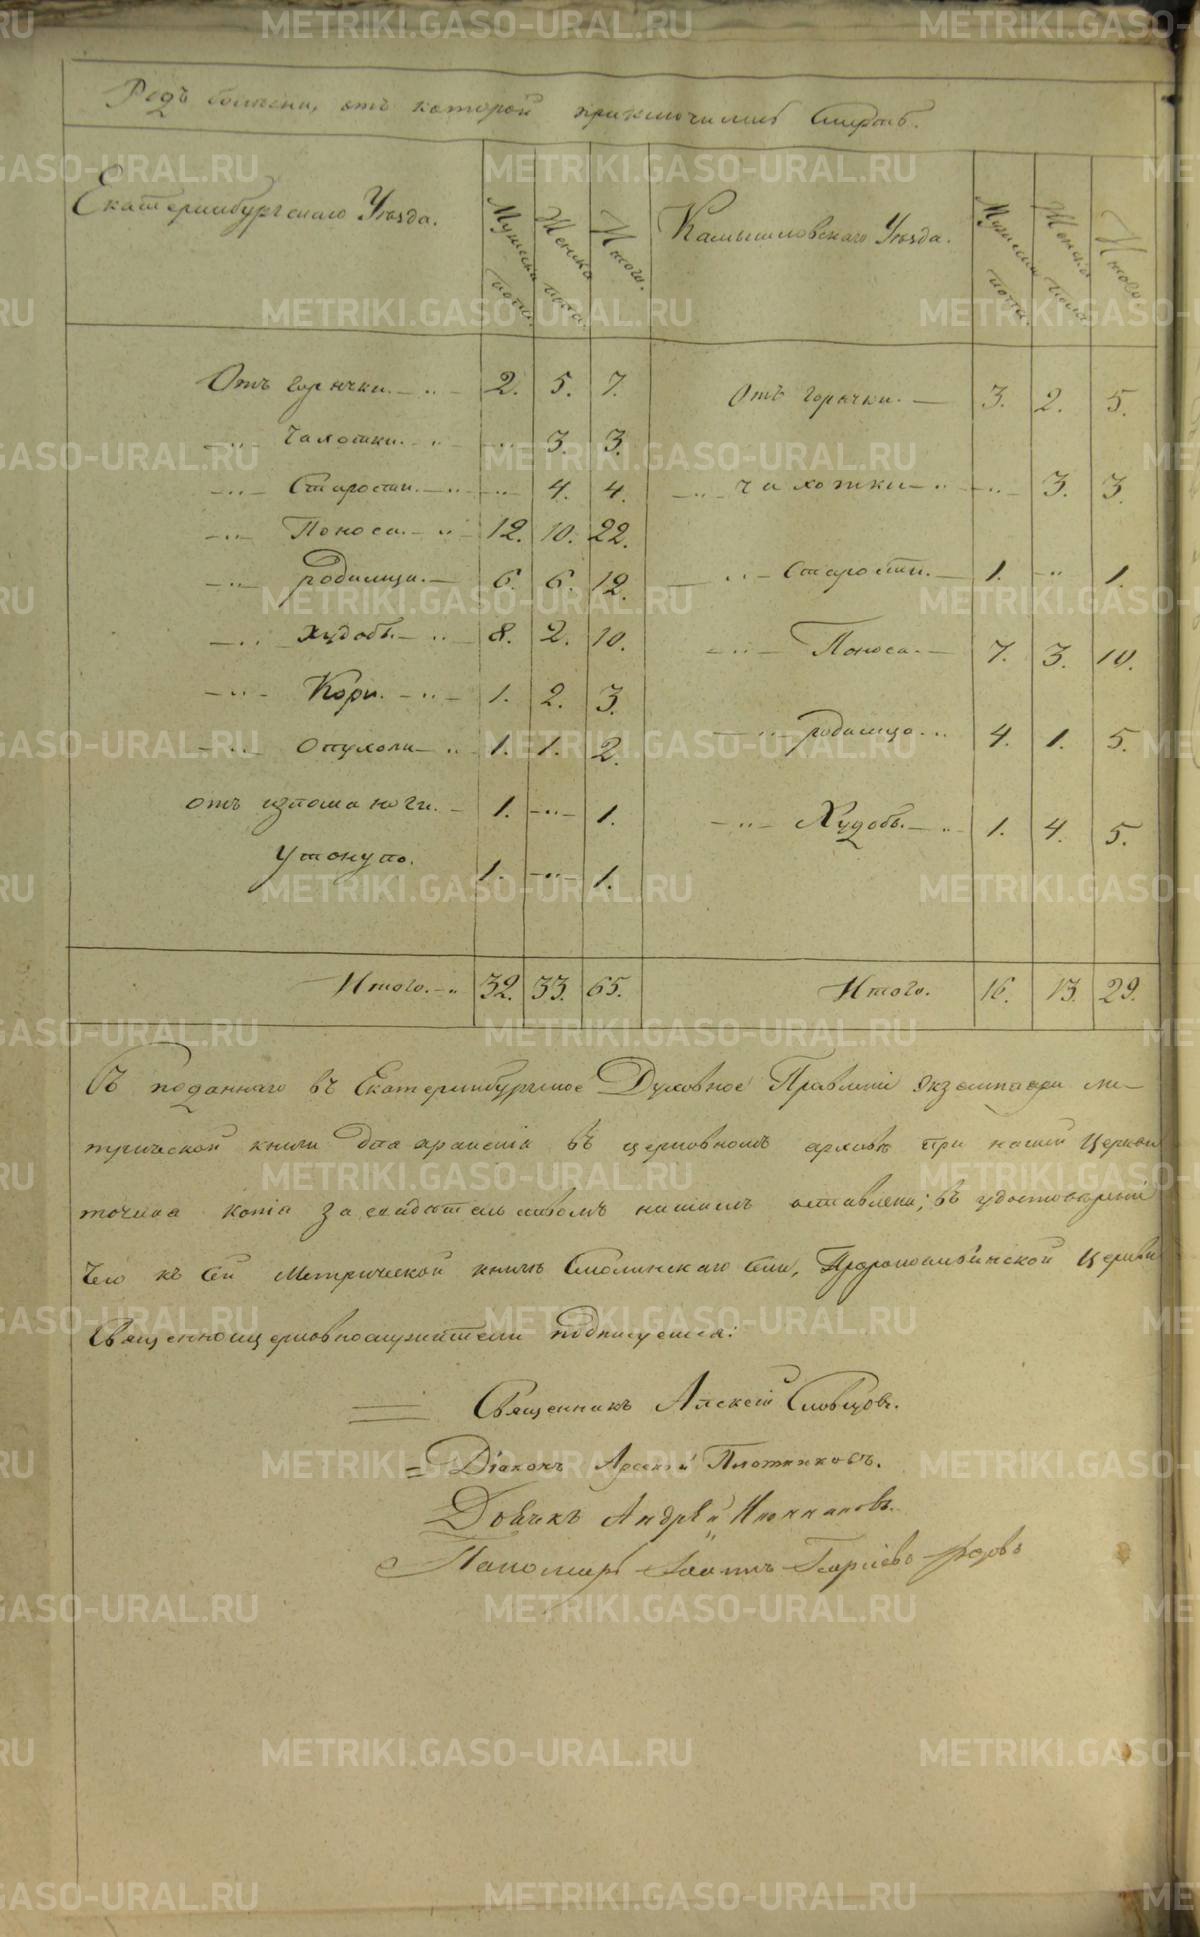 Родъ болѣзни, отъ которой приключилась смерть.
Екатеринбургскаго Уѣзда. Мужеска пола. Женска пола. Итого. Камышловскаго Уѣзда. Мужеска пола Женска пола Итого.
Отъ горячки. 2. 5. 7. Отъ горячки. 3. 2. 5.
Чахотки. 3. 3. чахотки 3. 3.
Старости. 4. 4. Старости. 1. 1.
Поноса. 12. 10. 22. Поноса. 7. 3. 10.
родимца. 6. 6. 12. родимца. 4. 1. 5.
худобы. 8. 2. 10. Худобы. 1. 4. 5.
Кори. 1. 2. 3.
опухоли 1. 1. 2.
отъ излома ноги. 1. 1.
утонуло. 1. 1.
Итого. 32. 33. 65. Итого. 16. 13. 29.
Съ поданнаго въ Екатеринбургское Духовное Правленіе экземпляра ме-
трической книги для храненія въ церковномъ архивѣ при нашей Церкви
точная копія за свидѣтельствомъ нашимъ оставлена; въ удостовѣреніе
чего къ сей Метрической книгѣ Смолинскаго села, Пророкоильинской Церкви
Священноцерковнослужители подписуемся:
Священникъ Алексій Словцовъ.
Діаконъ Арсеній Плотниковъ.
Дьячекъ Андрей
Пономарь Іоаннъ
METRIKI.GASO-URAL.RU